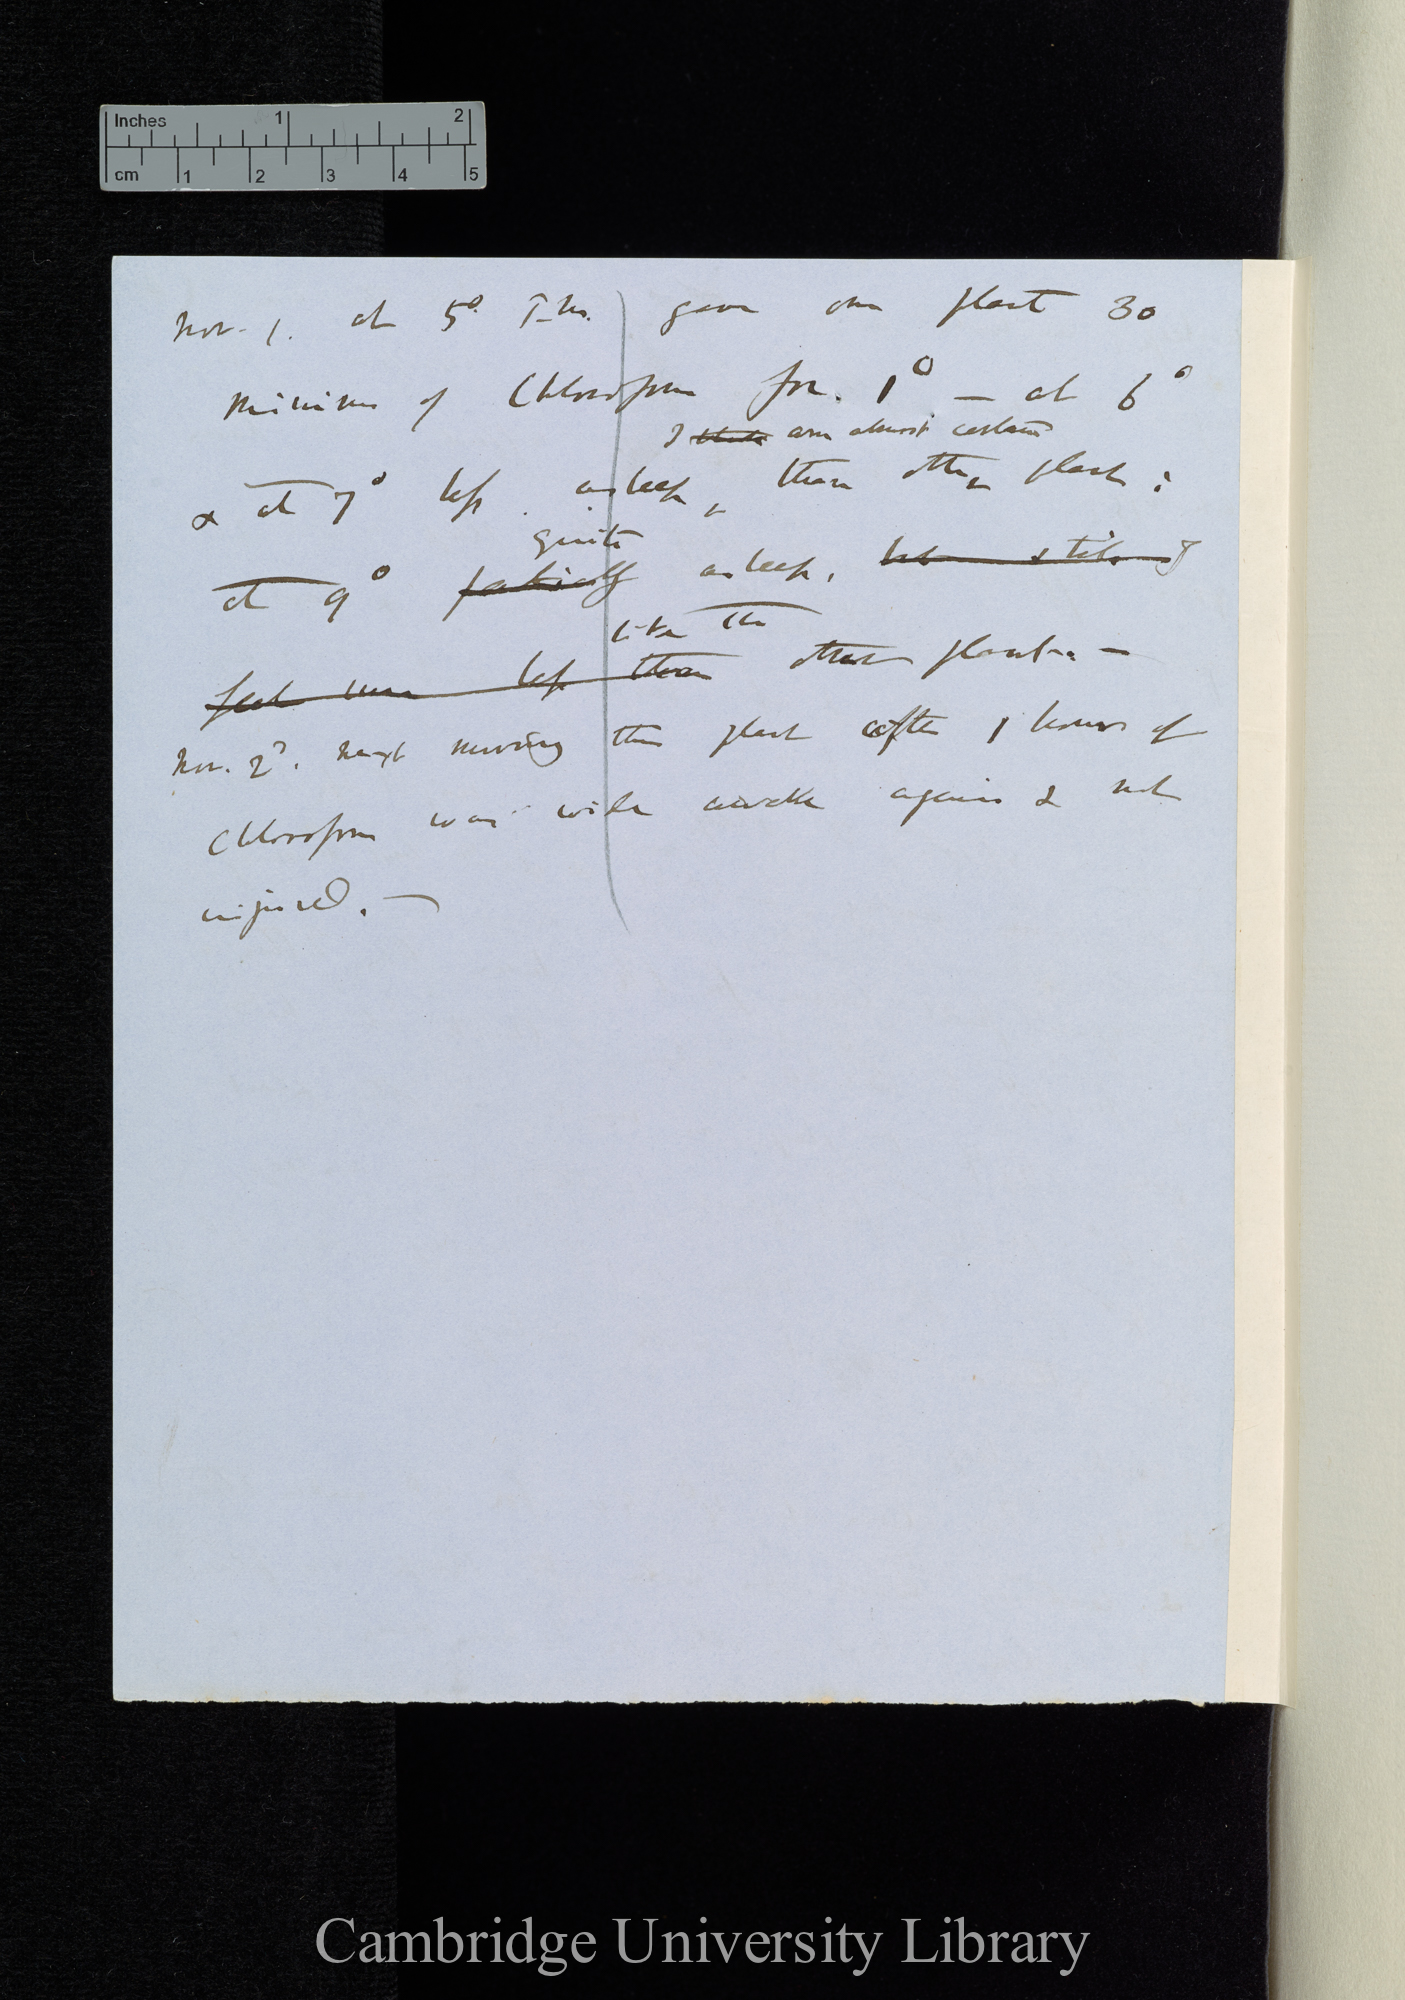 Inches 1 2
cm 1 2 3 4 5
Nov. 1. at 5° P.m. gave one plant 30
minims of Chloroform for. 1° — at 6°
I think am almost certain
& at 7° less asleep, than other plant;
quite
at 9° partially asleep, but still I
like the
feel sure less than other plants. —
Nov. 2d. next morning this plant after 1 hour of
Chloroform was wide awake again & not
injured. —
Cambridge University Library